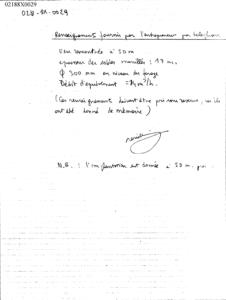 02188X0029
028-8X-0029
Renseignements fournis par l'entrepreneur par téléphone
Eau remontée à 50 m
épaisseur des sables mouillés : 17 m.
Φ 300 mm au niveau du forage
Débit d'équipement m³/h.
(Ces renseignements doivent être pris sous réserve, car ils
ont été donnés de mémoire)
N.B. : l'implantation est donnée à 20 m. près